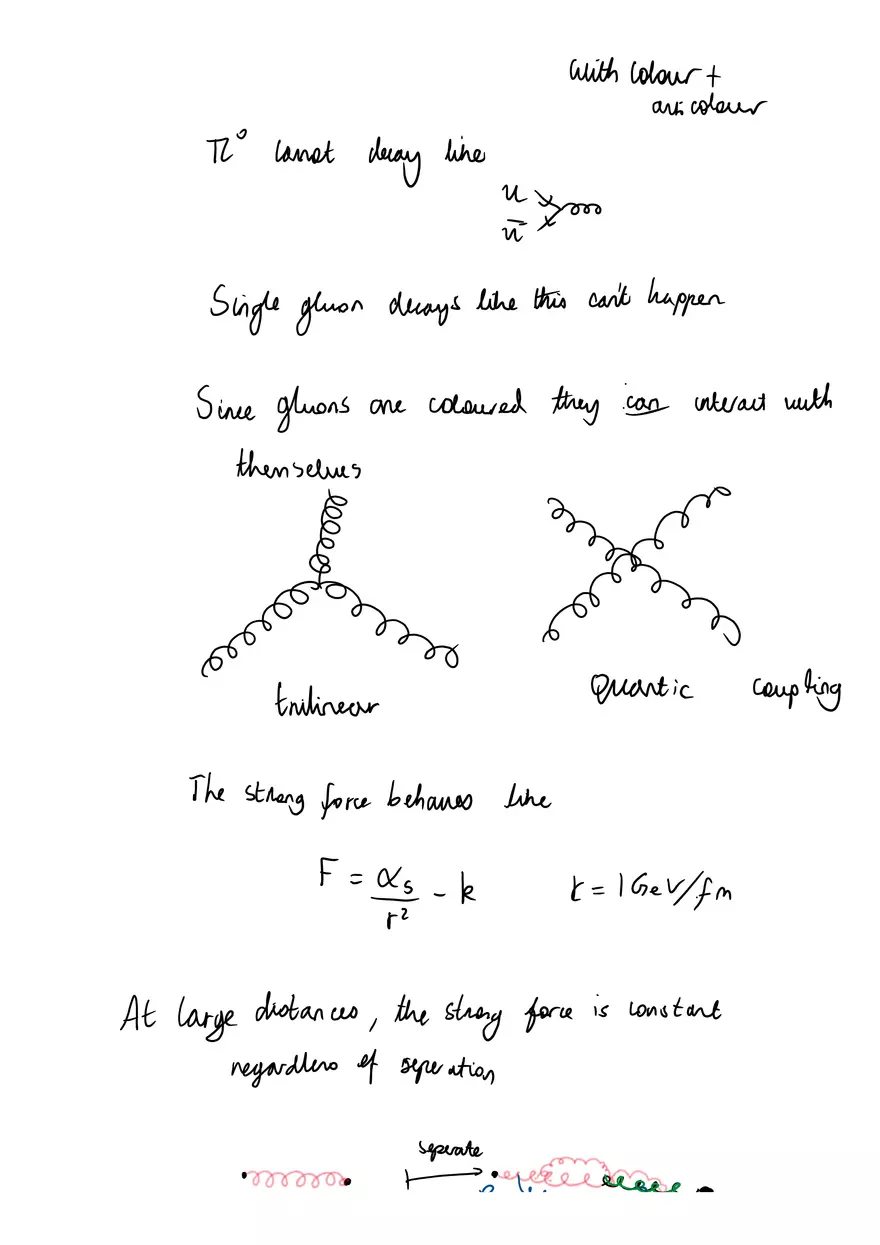 with colour +
anti colour
π⁰ cannot decay like
u
ū
Single gluon decays like this can't happen
Since gluons are coloured they can interact with
themselves
trilinear
Quartic coupling
The strong force behaves like
F = αs/r² - k    k = 1 GeV/fm
At large distances, the strong force is constant
regardless of seperation
seperate